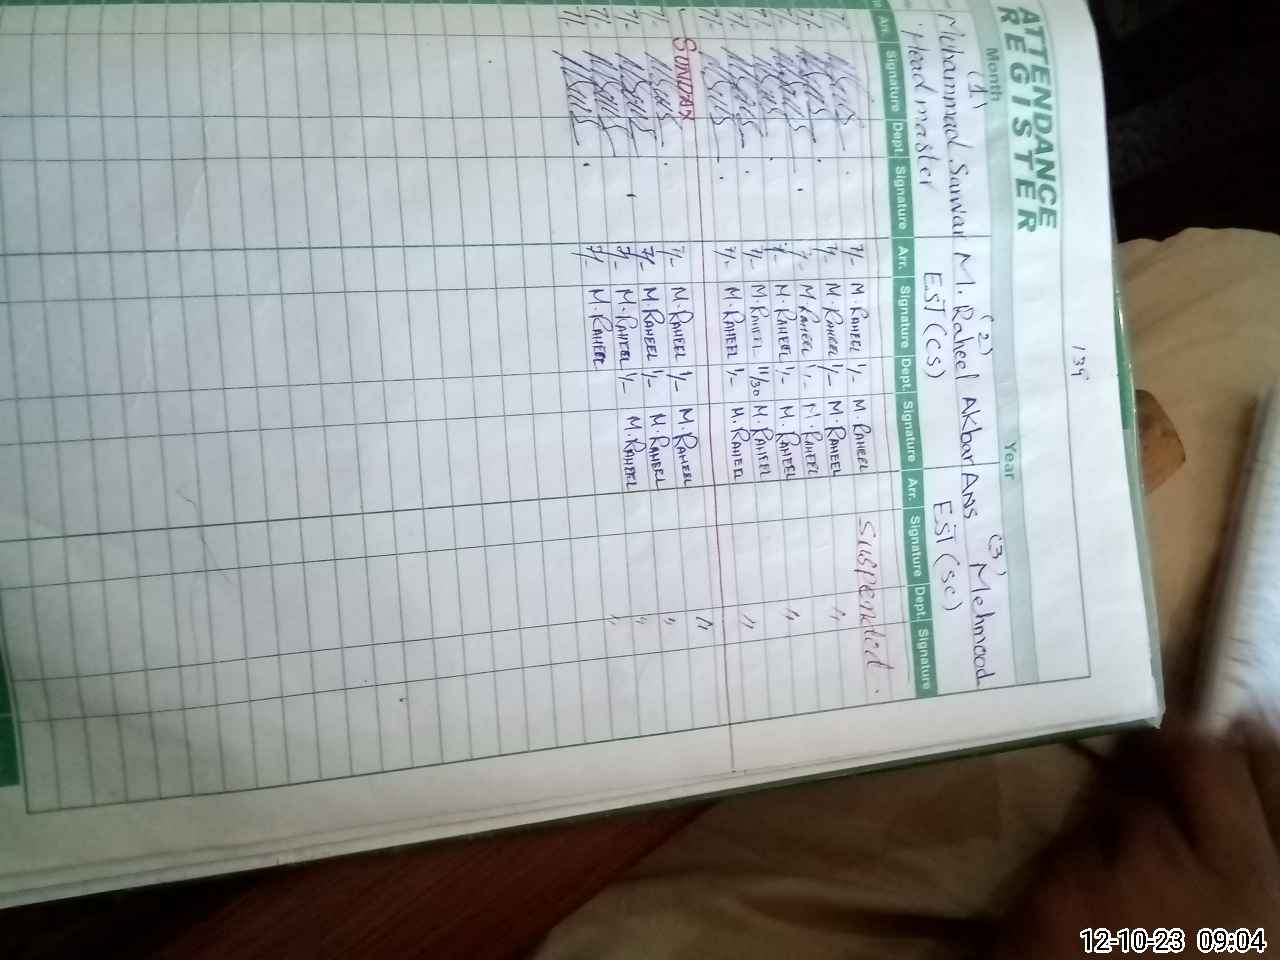 139
ATTENDANCE
REGISTER
Month
Year
(1) (2) (3)
Mohammad Sarwar M. Raheel Akbar Ans Mehmood
Head master EST (CS) EST (SC)
Arr. Signature Dept. Signature Arr. Signature Dept. Signature Arr. Signature Dept. Signature
7/- 7/- M. RAHEEL 1/- M. RAHEEL Suspended.
7/- 7/- M. RAHEEL 1/- M. RAHEEL "
7/- 7/- M. RAHEEL 1/- M. RAHEEL
7/- 7/- M. RAHEEL 1/- M. RAHEEL "
7/- 7/- M. RAHEEL 11/30 M. RAHEEL "
7/- 7/- M. RAHEEL 1/- M. RAHEEL
SUNDAY "
7/- 7/- M. RAHEEL 1/- M. RAHEEL "
7/- 7/- M. RAHEEL 1/- M. RAHEEL "
7/- 7/- M. RAHEEL 1/- M. RAHEEL "
7/- 7/- M. RAHEEL
12-10-23 09:04